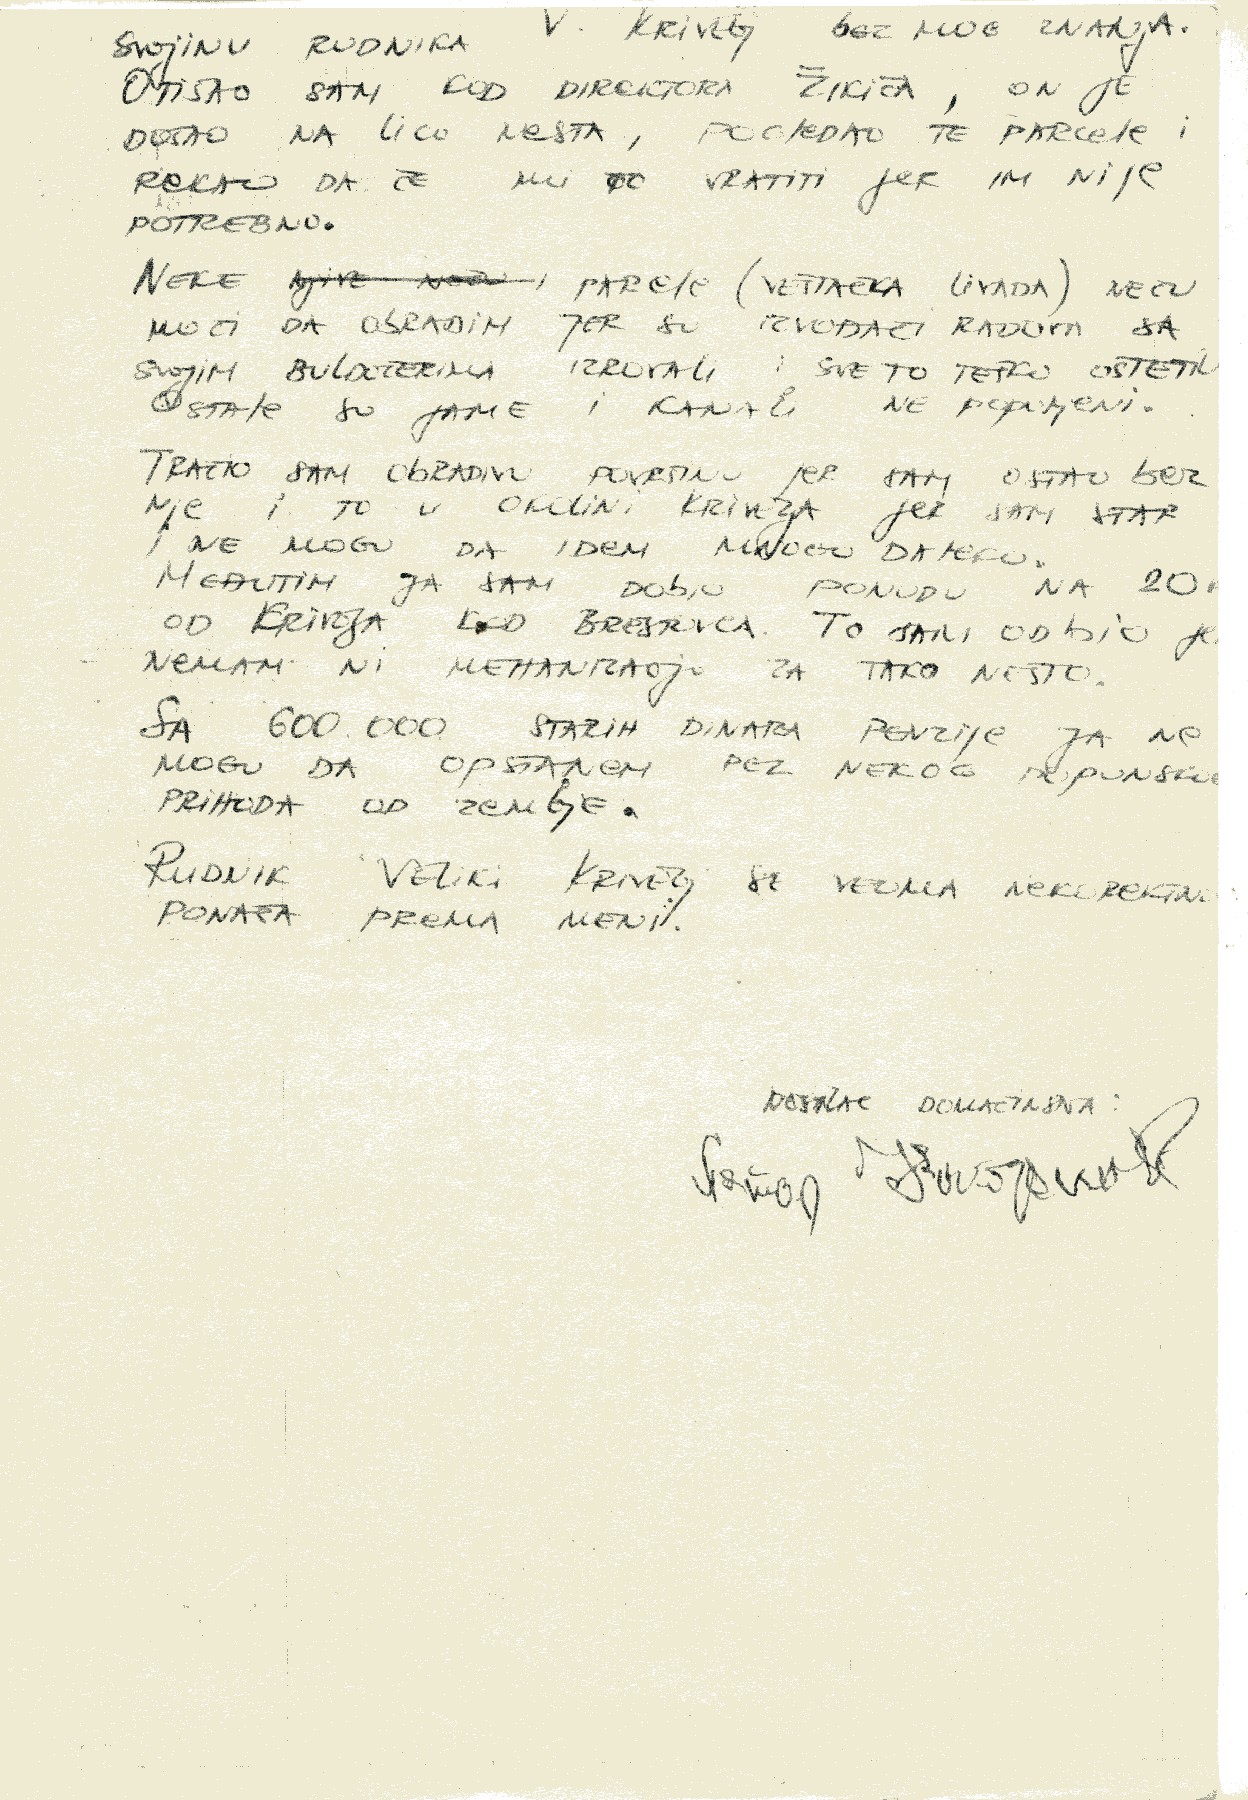 svojinu RUDNIKA V. KRIVELJ bez MOG ZNANJA.
OTIŠAO SAM KOD DIREKTORA ŽIKIĆA, ON JE
DOŠAO NA lice MESTA, POGledAO TE PARCele i
ReKAO DA ĆE MI TO VRATITI jER IM Nije
POTREBNO.
NEKE njIVE NEĆU i PARCele (VEŠTAČKA livADA) NEĆU
MOĆI DA OBRADIM JER SU IZVOĐAČI RADOVA SA
SvojiM BULDOZERIMA IZROVALI i SVE TO TEŠKO OŠTETIL
OSTAle SU jAME i KANALi NE POPUNjeni.
TRAŽIO SAM ObRADIVU POVRŠINU jER SAM OSTAO bez
Nje i TO U OKOLINi KRIVELJA jER SAM STAR
i NE MOGU DA IDEM MNOGO DAleKO.
MEĐUTIM JA SAM Dobio PONUDU NA 20
OD KRIVELJA KOD BRESTOVCA. TO SAM ODbio je
NEMAM Ni MEHANIZACIJU ZA TAKO NEŠTO.
SA 600.000 STARIH DINARA PENZIje JA NE
MOGU DA OPSTANEM BEZ NEKOG DOPUNSKOG
PRIHODA OD ZEMLJE.
RUDNIK VELIKI KRIVELJ SE VEOMA NEKOREKTNO
PONAŠA PREMA MENI.
NOSILAC DOMAĆINSTVA: